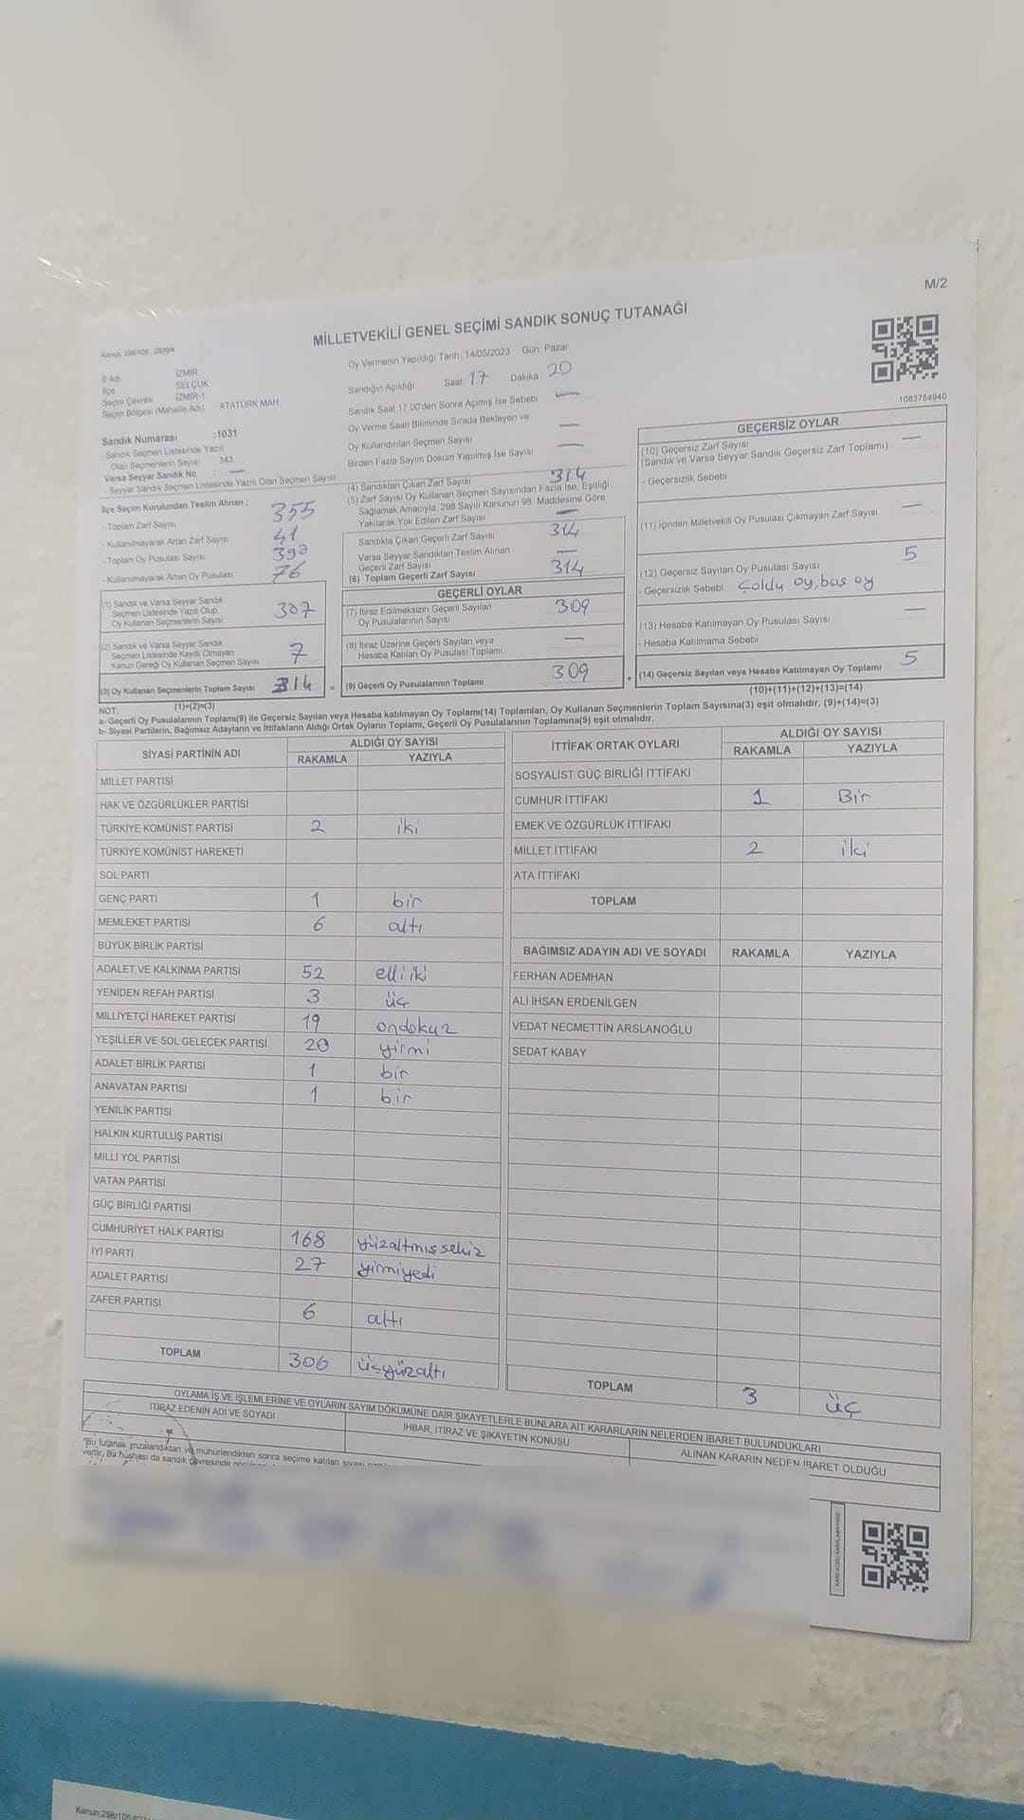 M/2
MİLLETVEKİLİ GENEL SEÇİMİ SANDIK SONUÇ TUTANAĞI
1083754940
İl Adı İZMİR
İlçe SELÇUK
Seçim Çevresi İZMİR-1
Seçim Bölgesi (Mahalle Adı) ATATÜRK MAH
Sandık Numarası :1031
Sandık Seçmen Listesinde Yazılı
Olan Seçmenlerin Sayısı 343
Varsa Seyyar Sandık No : —
- Seyyar Sandık Seçmen Listesinde Yazılı Olan Seçmen Sayısı
Oy Vermenin Yapıldığı Tarih: 14/05/2023 Gün: Pazar
Sandığın Açıldığı Saat 17 Dakika 20
Sandık Saat 17.00'den Sonra Açılmış İse Sebebi —
Oy Verme Saati Bitiminde Sırada Bekleyen ve
Oy Kullandırılan Seçmen Sayısı —
Birden Fazla Sayım Döküm Yapılmış İse Sayısı —
İlçe Seçim Kurulundan Teslim Alınan :
- Toplam Zarf Sayısı 355
- Kullanılmayarak Artan Zarf Sayısı 41
- Toplam Oy Pusulası Sayısı
- Kullanılmayarak Artan Oy Pusulası 76
(1) Sandık ve Varsa Seyyar Sandık
Seçmen Listesinde Yazılı Olup
Oy Kullanan Seçmenlerin Sayısı 307
(2) Sandık ve Varsa Seyyar Sandık
Seçmen Listesinde Kaydı Olmayan
Kanun Gereği Oy Kullanan Seçmen Sayısı 7
(3) Oy Kullanan Seçmenlerin Toplam Sayısı 314
(1)+(2)=(3)
(4) Sandıktan Çıkan Zarf Sayısı 314
(5) Zarf Sayısı Oy Kullanan Seçmen Sayısından Fazla İse, Eşitliği
Sağlamak Amacıyla, 298 Sayılı Kanunun 98. Maddesine Göre
Yakılarak Yok Edilen Zarf Sayısı —
Sandıkta Çıkan Geçerli Zarf Sayısı 314
Varsa Seyyar Sandıktan Teslim Alınan
Geçerli Zarf Sayısı —
(6) Toplam Geçerli Zarf Sayısı 314
GEÇERLİ OYLAR
(7) İtiraz Edilmeksizin Geçerli Sayılan
Oy Pusulalarının Sayısı 309
(8) İtiraz Üzerine Geçerli Sayılan veya
Hesaba Katılan Oy Pusulası Toplamı —
= (9) Geçerli Oy Pusulalarının Toplamı 309
GEÇERSİZ OYLAR
(10) Geçersiz Zarf Sayısı
(Sandık ve Varsa Seyyar Sandık Geçersiz Zarf Toplamı) —
- Geçersizlik Sebebi
(11) İçinden Milletvekili Oy Pusulası Çıkmayan Zarf Sayısı —
(12) Geçersiz Sayılan Oy Pusulası Sayısı 5
- Geçersizlik Sebebi
(13) Hesaba Katılmayan Oy Pusulası Sayısı —
- Hesaba Katılmama Sebebi
+ (14) Geçersiz Sayılan veya Hesaba Katılmayan Oy Toplamı 5
(10)+(11)+(12)+(13)=(14)
NOT:
a- Geçerli Oy Pusulalarının Toplamı(9) ile Geçersiz Sayılan veya Hesaba katılmayan Oy Toplamı(14) Toplamları, Oy Kullanan Seçmenlerin Toplam Sayısına(3) eşit olmalıdır. (9)+(14)=(3)
b- Siyasi Partilerin, Bağımsız Adayların ve İttifakların Aldığı Ortak Oyların Toplamı, Geçerli Oy Pusulalarının Toplamına(9) eşit olmalıdır.
SİYASİ PARTİNİN ADI ALDIĞI OY SAYISI
RAKAMLA YAZIYLA
MİLLET PARTİSİ
HAK VE ÖZGÜRLÜKLER PARTİSİ
TÜRKİYE KOMÜNİST PARTİSİ 2 iki
TÜRKİYE KOMÜNİST HAREKETİ
SOL PARTİ
GENÇ PARTİ 1 bir
MEMLEKET PARTİSİ 6 altı
BÜYÜK BİRLİK PARTİSİ
ADALET VE KALKINMA PARTİSİ 52 elli iki
YENİDEN REFAH PARTİSİ 3 üç
MİLLİYETÇİ HAREKET PARTİSİ 19 ondokuz
YEŞİLLER VE SOL GELECEK PARTİSİ 20 yirmi
ADALET BİRLİK PARTİSİ 1 bir
ANAVATAN PARTİSİ 1 bir
YENİLİK PARTİSİ
HALKIN KURTULUŞ PARTİSİ
MİLLİ YOL PARTİSİ
VATAN PARTİSİ
GÜÇ BİRLİĞİ PARTİSİ
CUMHURİYET HALK PARTİSİ 168 yüzaltmışsekiz
İYİ PARTİ 27 yirmiyedi
ADALET PARTİSİ
ZAFER PARTİSİ 6 altı
TOPLAM 306 üçyüzaltı
İTTİFAK ORTAK OYLARI ALDIĞI OY SAYISI
RAKAMLA YAZIYLA
SOSYALİST GÜÇ BİRLİĞİ İTTİFAKI
CUMHUR İTTİFAKI 1 Bir
EMEK VE ÖZGÜRLÜK İTTİFAKI
MİLLET İTTİFAKI 2 iki
ATA İTTİFAKI
TOPLAM
BAĞIMSIZ ADAYIN ADI VE SOYADI RAKAMLA YAZIYLA
FERHAN ADEMHAN
ALİ İHSAN ERDENİLGEN
VEDAT NECMETTİN ARSLANOĞLU
SEDAT KABAY
TOPLAM 3 üç
OYLAMA İŞ VE İŞLEMLERİNE VE OYLARIN SAYIM DÖKÜMÜNE DAİR ŞİKAYETLERLE BUNLARA AİT KARARLARIN NELERDEN İBARET BULUNDUKLARI
İTİRAZ EDENİN ADI VE SOYADI İHBAR, İTİRAZ VE ŞİKAYETİN KONUSU ALINAN KARARIN NEDEN İBARET OLDUĞU
"Bu tutanak imzalandıktan ve mühürlendikten sonra seçime katılan siyasi
verilir. Bu nüshası da sandık çevresinde